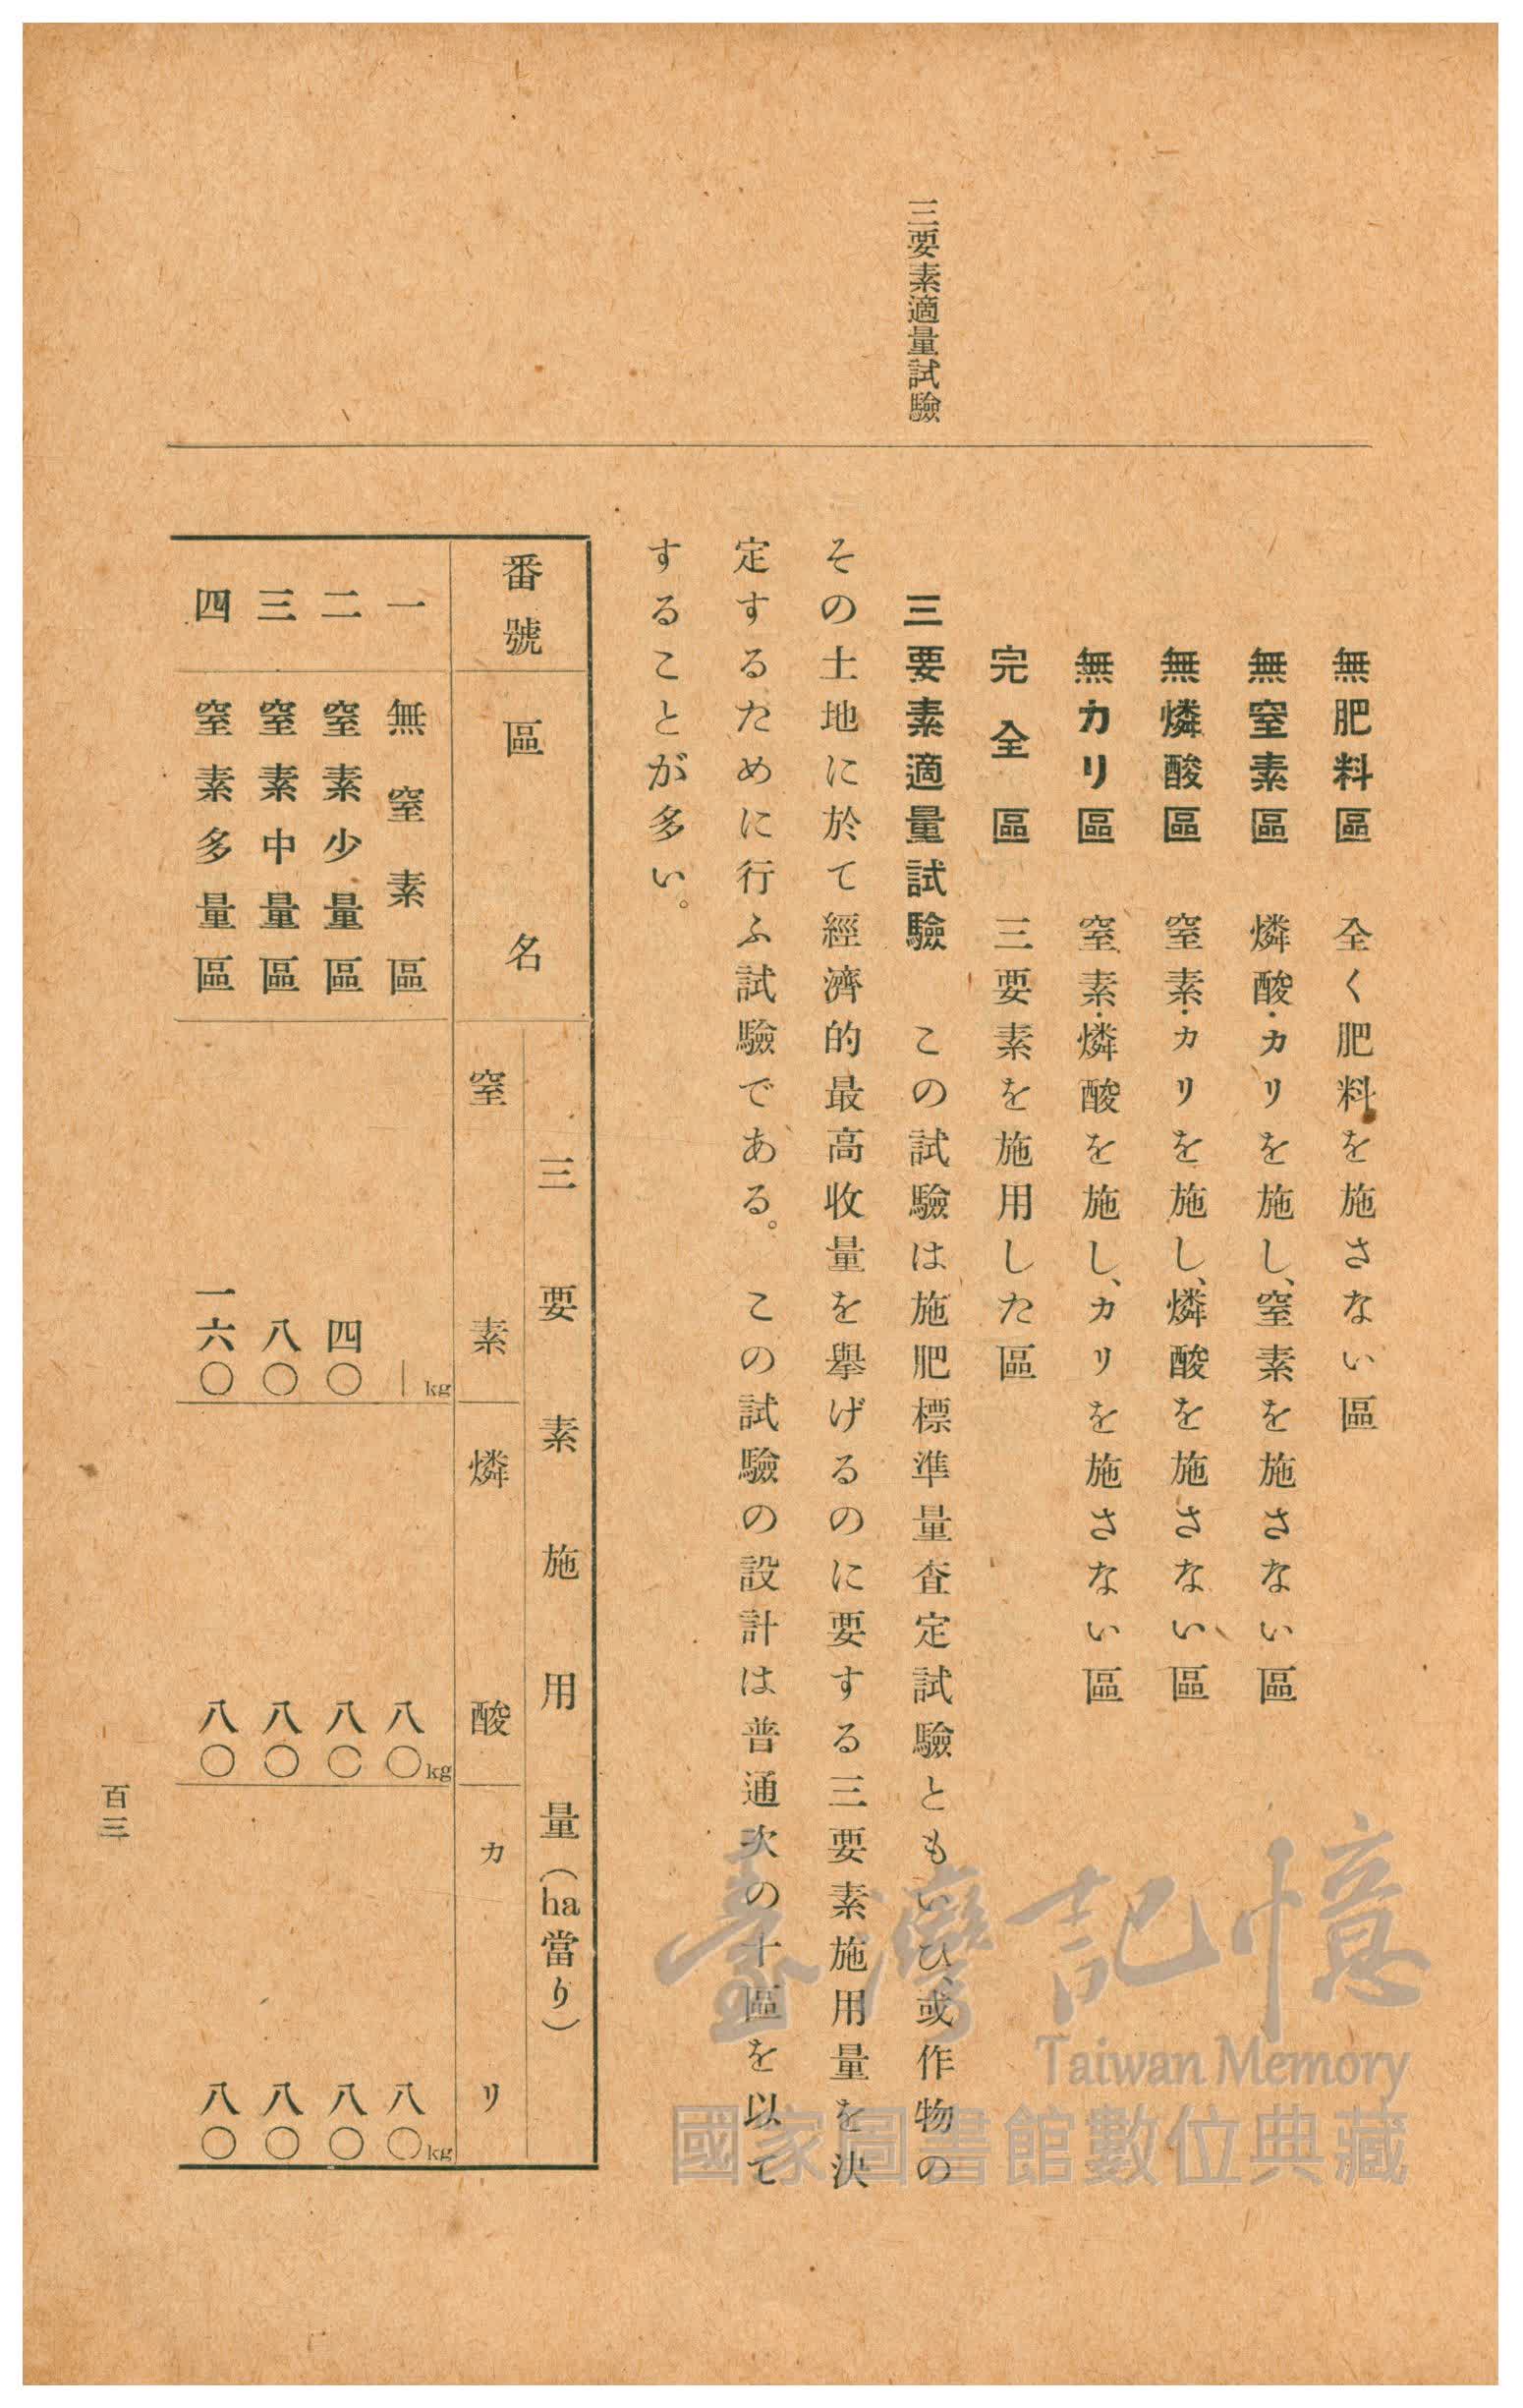 三要素適量試驗
無肥料區　全く肥料を施さない區
無窒素區　燐酸・カリを施し、窒素を施さない區
無燐酸區　窒素・カリを施し、燐酸を施さない區
無カリ區　窒素・燐酸を施し、カリを施さない區
完全區　三要素を施用した區
三要素適量試驗　この試驗は施肥標準量査定試驗ともいひ、或作物の
その土地に於て經濟的最高收量を擧げるのに要する三要素施用量を決
定するために行ふ試驗である。この試驗の設計は普通次の十區を以て
することが多い。
番號　區名　三要素施用量（ha當り）
窒素　燐酸　カリ
一　無窒素區　｜kg　八〇kg　八〇kg
二　窒素少量區　四〇　八〇　八〇
三　窒素中量區　八〇　八〇　八〇
四　窒素多量區　一六〇　八〇　八〇
百三
臺灣記憶
Taiwan Memory
國家圖書館數位典藏